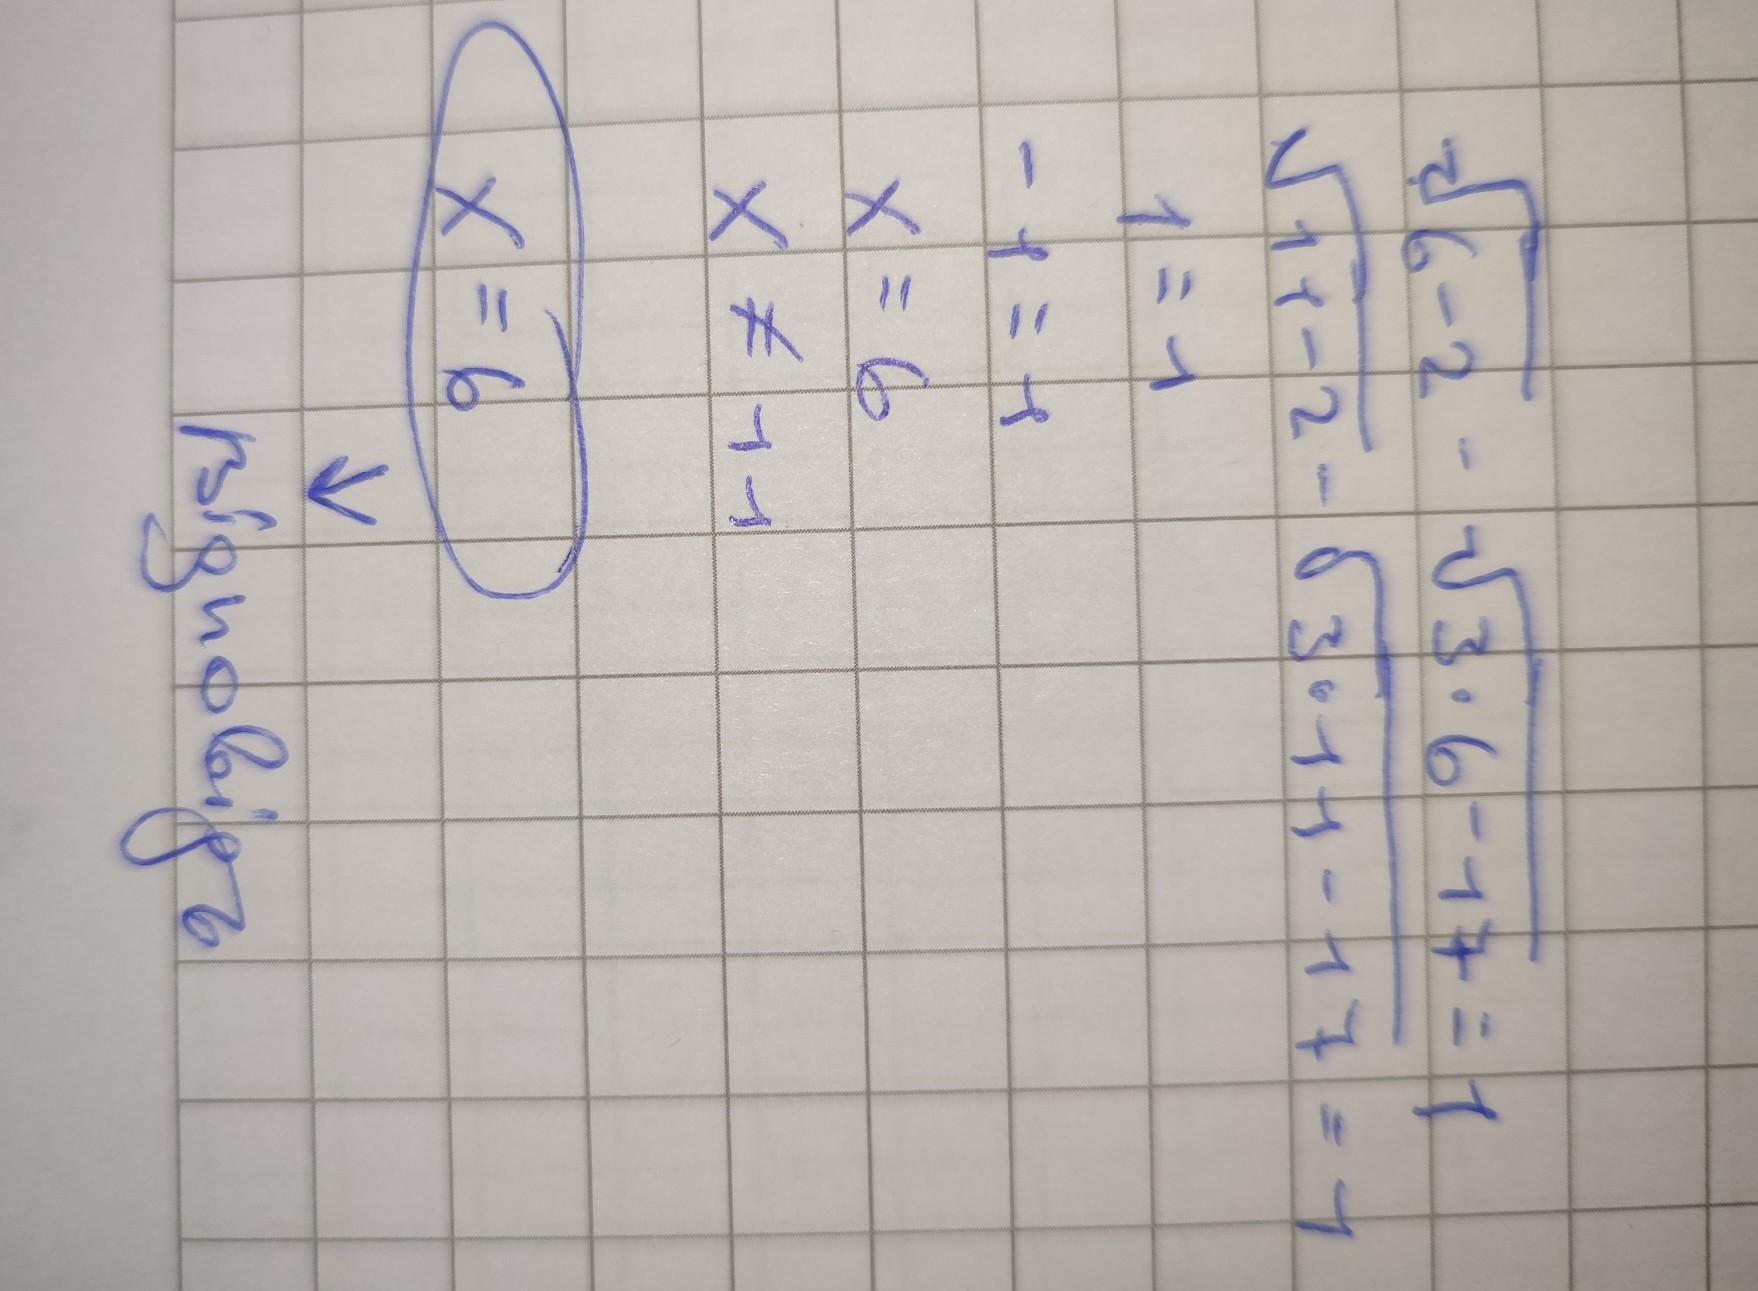 √6-2 - √3·6-17 = 1
√11-2 - √3·11-17 = 1
1 = 1
-1 = 1
x = 6
x ≠ 11
x = 6
↓
відповідь